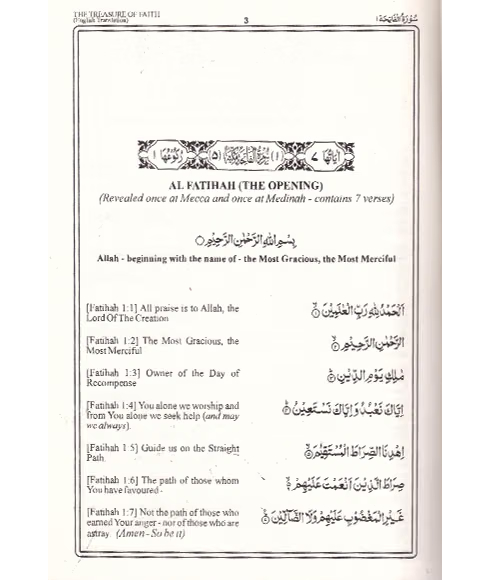 THE TREASURE OF FAITH
(English Translation)
3
سُوْرَةُ الْفَاتِحَة ١
اٰيَاتُهَا ٧
(١) سُوْرَةُ الْفَاتِحَةِ مَكِّيَّةٌ (٥)
رُكُوْعُهَا ١
AL FATIHAH (THE OPENING)
(Revealed once at Mecca and once at Medinah - contains 7 verses)
بِسْمِ اللهِ الرَّحْمٰنِ الرَّحِيْمِ
Allah - beginning with the name of - the Most Gracious, the Most Merciful
[Fatihah 1:1] All praise is to Allah, the
Lord Of The Creation
اَلْحَمْدُ لِلّٰهِ رَبِّ الْعٰلَمِيْنَ
[Fatihah 1:2] The Most Gracious, the
Most Merciful
الرَّحْمٰنِ الرَّحِيْمِ
[Fatihah 1:3] Owner of the Day of
Recompense
مٰلِكِ يَوْمِ الدِّيْنِ
[Fatihah 1:4] You alone we worship and
from You alone we seek help (and may
we always).
اِيَّاكَ نَعْبُدُ وَاِيَّاكَ نَسْتَعِيْنُ
[Fatihah 1:5] Guide us on the Straight
Path.
اِهْدِنَا الصِّرَاطَ الْمُسْتَقِيْمَ
[Fatihah 1:6] The path of those whom
You have favoured -
صِرَاطَ الَّذِيْنَ اَنْعَمْتَ عَلَيْهِمْ
[Fatihah 1:7] Not the path of those who
earned Your anger - nor of those who are
astray. (Amen - So be it)
غَيْرِ الْمَغْضُوْبِ عَلَيْهِمْ وَلَا الضَّآلِّيْنَ